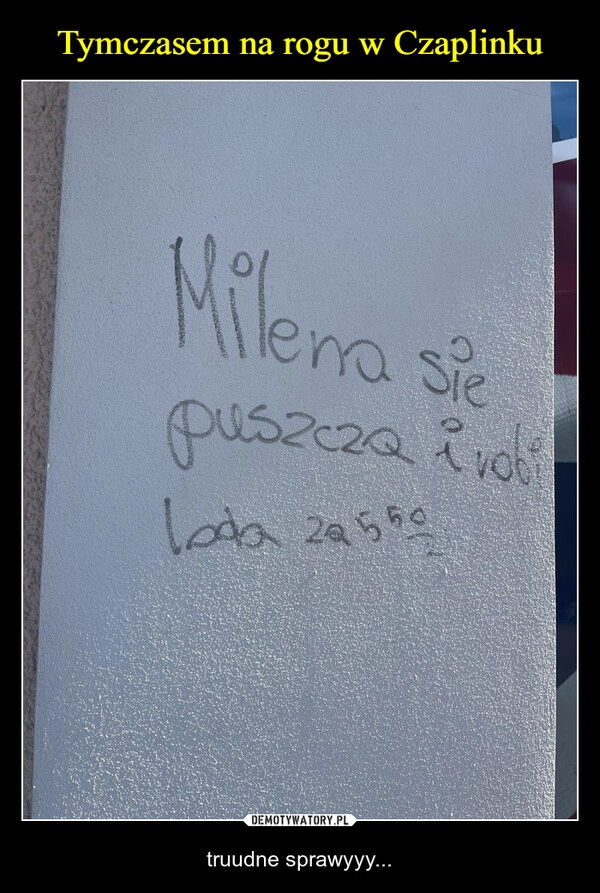 Tymczasem na rogu w Czaplinku
Milena sie
puszcza i robi
loda za 5 50
DEMOTYWATORY.PL
truudne sprawyyy...